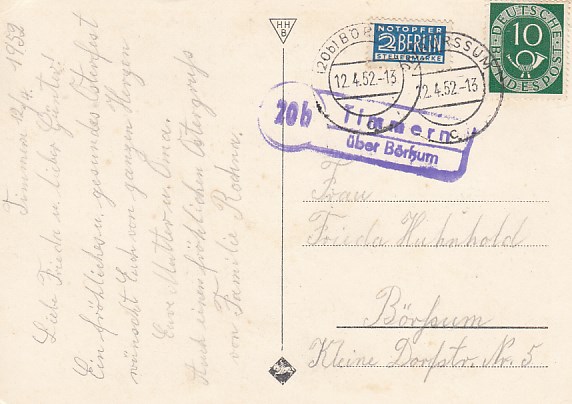 Timmern 12/4. 1952
Liebe Frieda u. lieber Günter!
Ein fröhliches u. gesundes Osterfest
wünscht Euch von ganzen Herzen
Eure Mutter u. Oma.
Auch einen fröhlichen Ostergruß
von Familie
HH
B
NOTOPFER
2 BERLIN
STEUERMARKE
DEUTSCHE BUNDESPOST
10
(20b) BÖRSSUM
12.4.52.-13
c
(20b) BÖRSSUM
12.4.52.-13
c
20b
Timmern
über Börßum
Frau
Frieda Huhnhold
Börßum
Kleine Dorfstr. Nr. 5